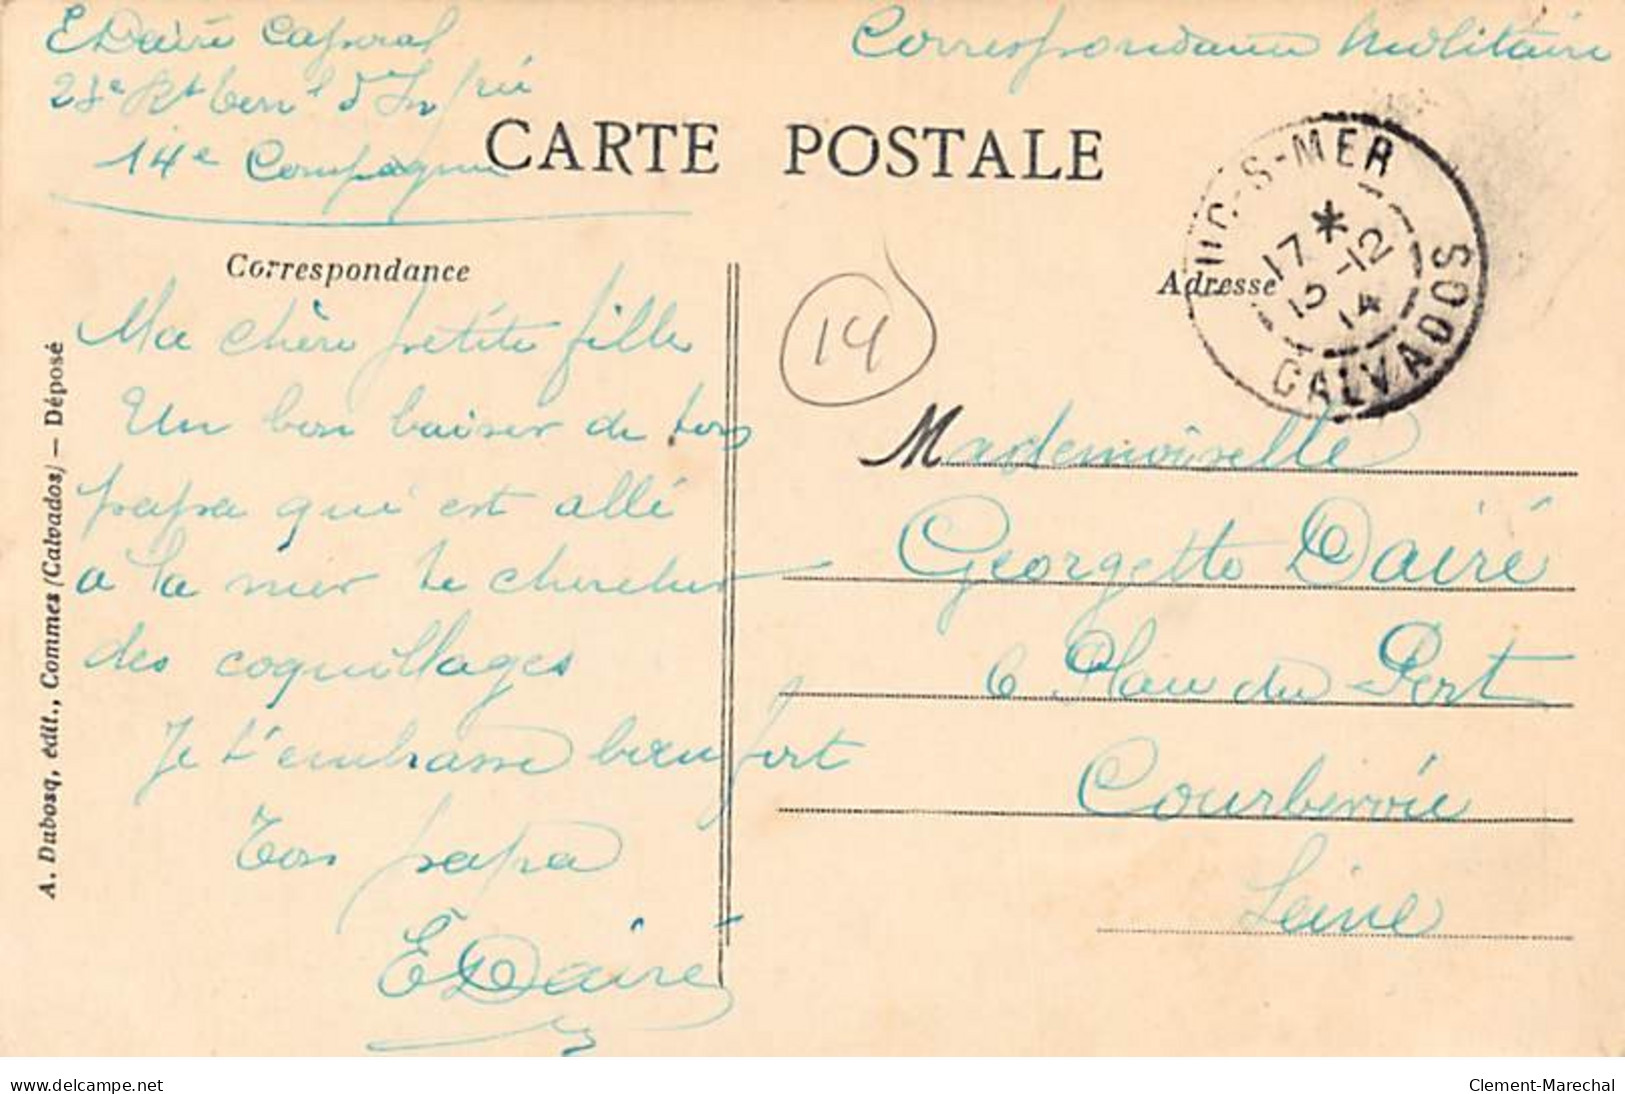 E Dairé Caporal
Rt d'Infrie
14e Compagnie
Correspondance Militaire
CARTE POSTALE
S-MER
17 *
15-12
14
CALVADOS
Correspondance
Adresse
14
Ma chère petite fille
Un bon baiser de ton
papa qui est allé
a la mer te chercher
des coquillages
Je t'embrasse bien fort
Ton papa
E Dairé
Mademoiselle
Georgette Dairé
6 Place du Port
Courbevoie
Seine
A. Dubosq, édit., Commes (Calvados) — Déposé
delcampe.net
Clement-Marechal